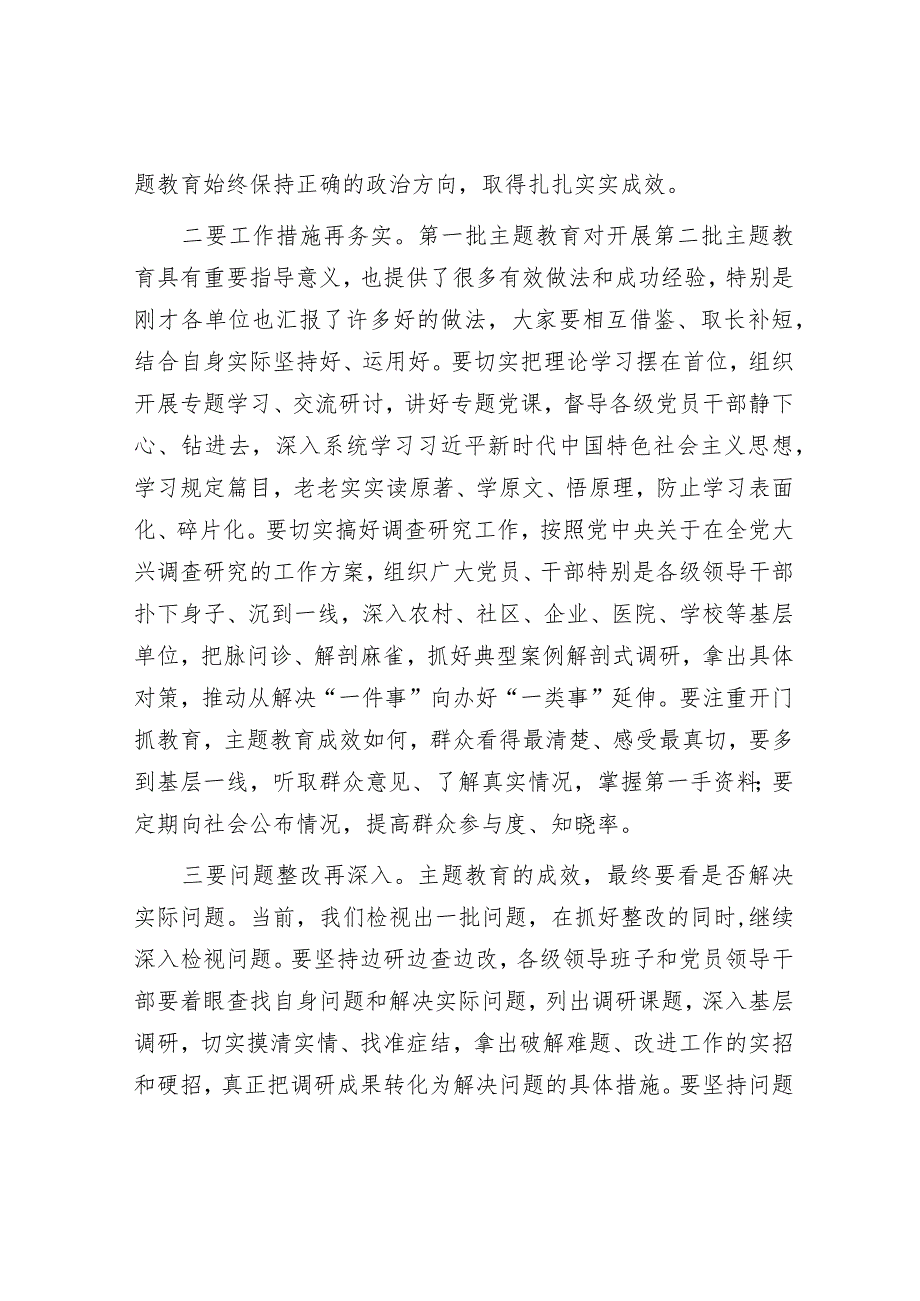 题教育始终保持正确的政治方向，取得扎扎实实成效。
二要工作措施再务实。第一批主题教育对开展第二批主题教
育具有重要指导意义，也提供了很多有效做法和成功经验，特别是
刚才各单位也汇报了许多好的做法，大家要相互借鉴、取长补短，
结合自身实际坚持好、运用好。要切实把理论学习摆在首位，组织
开展专题学习、交流研讨，讲好专题党课，督导各级党员干部静下
心、钻进去，深入系统学习习近平新时代中国特色社会主义思想，
学习规定篇目，老老实实读原著、学原文、悟原理，防止学习表面
化、碎片化。要切实搞好调查研究工作，按照党中央关于在全党大
兴调查研究的工作方案，组织广大党员、干部特别是各级领导干部
扑下身子、沉到一线，深入农村、社区、企业、医院、学校等基层
单位，把脉问诊、解剖麻雀，抓好典型案例解剖式调研，拿出具体
对策，推动从解决“一件事”向办好“一类事”延伸。要注重开门
抓教育，主题教育成效如何，群众看得最清楚、感受最真切，要多
到基层一线，听取群众意见、了解真实情况，掌握第一手资料；要
定期向社会公布情况，提高群众参与度、知晓率。
三要问题整改再深入。主题教育的成效，最终要看是否解决
实际问题。当前，我们检视出一批问题，在抓好整改的同时,继续
深入检视问题。要坚持边研边查边改，各级领导班子和党员领导干
部要着眼查找自身问题和解决实际问题，列出调研课题，深入基层
调研，切实摸清实情、找准症结，拿出破解难题、改进工作的实招
和硬招，真正把调研成果转化为解决问题的具体措施。要坚持问题